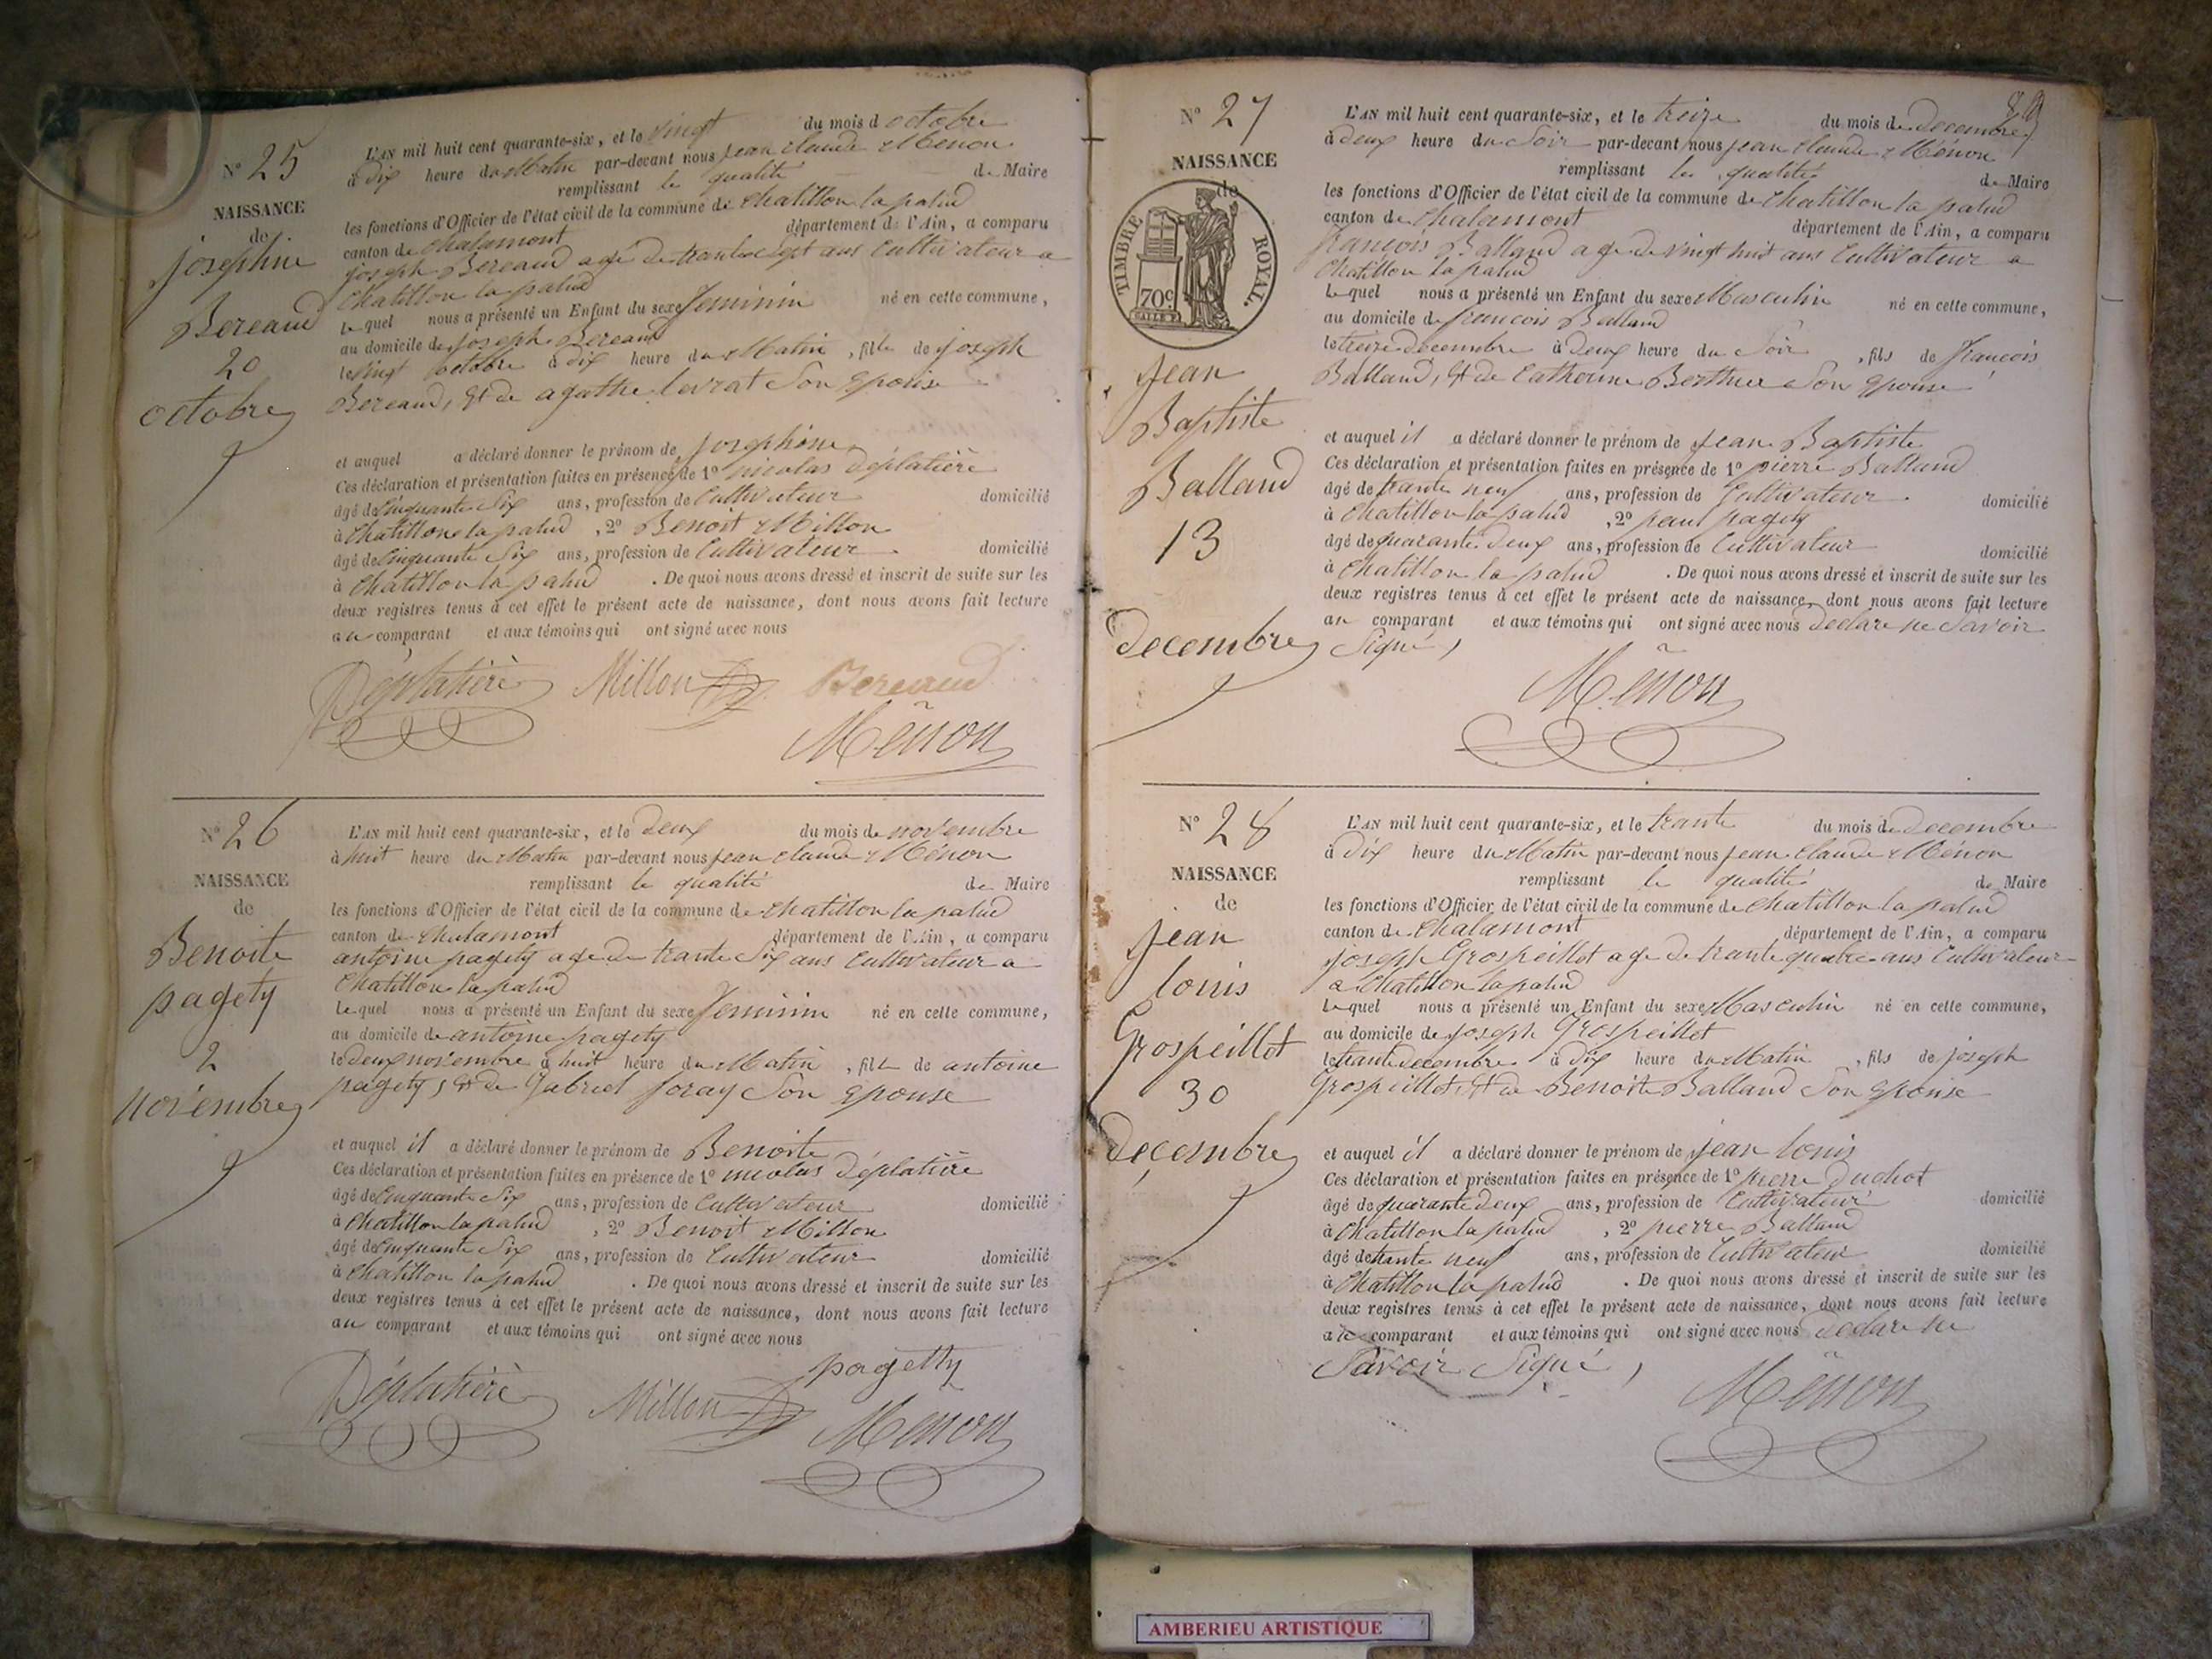 N° 25
NAISSANCE
de
josephine
Bereaud
20
octobre
L'AN mil huit cent quarante-six, et le vingt du mois d octobre
à dix heure du Matin par-devant nous jean claude Ménon
remplissant la qualité de Maire
les fonctions d'Officier de l'état civil de la commune de chatillon la palud
canton de chalamont département de l'Ain, a comparu
joseph Bereaud agé de trante sept ans Cultivateur a
Chatillon la palud
Lequel nous a présenté un Enfant du sexe feminin né en cette commune,
au domicile de joseph Bereaud
le vingt octobre à dix heure du Matin, fille de joseph
Bereaud, et de agathe levrat Son Epouse
et auquel a déclaré donner le prénom de josephine
Ces déclaration et présentation faites en présence de 1° nicolas Déplatière
âgé de Cinquante Six ans, profession de Cultivateur domicilié
à Chatillon la palud, 2° Benoit Millon
âgé de Cinquante Six ans, profession de Cultivateur domicilié
à Chatillon la palud. De quoi nous avons dressé et inscrit de suite sur les
deux registres tenus à cet effet le présent acte de naissance, dont nous avons fait lecture
au comparant et aux témoins qui ont signé avec nous
Déplatière Millon Bereaud
Ménon
N° 26
NAISSANCE
de
Benoite
pagety
2
novembre
L'AN mil huit cent quarante-six, et le Deux du mois de novembre
à huit heure du Matin par-devant nous jean claude Ménon
remplissant la qualité de Maire
les fonctions d'Officier de l'état civil de la commune de chatillon la palud
canton de chalamont département de l'Ain, a comparu
antoine pagety age de trante Six ans Cultivateur a
Chatillon la palud
Lequel nous a présenté un Enfant du sexe feminin né en cette commune,
au domicile de antoine pagety
le deux novembre à huit heure du Matin, fille de antoine
pagety, et de Gabriel foray Son Epouse
et auquel il a déclaré donner le prénom de Benoite
Ces déclaration et présentation faites en présence de 1° nicolas Déplatière
âgé de Cinquante Six ans, profession de Cultivateur domicilié
à Chatillon la palud, 2° Benoit Millon
âgé de Cinquante Six ans, profession de Cultivateur domicilié
à Chatillon la palud. De quoi nous avons dressé et inscrit de suite sur les
deux registres tenus à cet effet le présent acte de naissance, dont nous avons fait lecture
au comparant et aux témoins qui ont signé avec nous
pagetty
Déplatière Millon Ménon
N° 27
NAISSANCE
de
TIMBRE ROYAL.
70c
jean
Baptiste
Balland
13
decembre
L'AN mil huit cent quarante-six, et le treize du mois de Decembre
à deux heure du Soir par-devant nous jean claude Ménon
remplissant la qualité de Maire
les fonctions d'Officier de l'état civil de la commune de chatillon la palud
canton de chalamont département de l'Ain, a comparu
françois Balland age de vingt huit ans Cultivateur a
Chatillon la palud
Lequel nous a présenté un Enfant du sexe Masculin né en cette commune,
au domicile de francois Balland
le treize decembre à Deux heure du Soir, fils de françois
Balland, et de Catherine Berthier Son Epouse
et auquel il a déclaré donner le prénom de Jean Baptiste
Ces déclaration et présentation faites en présence de 1° pierre Balland
âgé de trante neuf ans, profession de Cultivateur domicilié
à Chatillon la palud, 2° paul pagety
âgé de quarante deux ans, profession de Cultivateur domicilié
à Chatillon la palud. De quoi nous avons dressé et inscrit de suite sur les
deux registres tenus à cet effet le présent acte de naissance, dont nous avons fait lecture
au comparant et aux témoins qui ont signé avec nous Declare ne Savoir
Signé,
Ménon
N° 28
NAISSANCE
de
jean
louis
Grospeillet
30
decembre
L'AN mil huit cent quarante-six, et le trante du mois de Decembre
à dix heure du Matin par-devant nous jean claude Ménon
remplissant la qualité de Maire
les fonctions d'Officier de l'état civil de la commune de chatillon la palud
canton de chalamont département de l'Ain, a comparu
joseph Grospeillet age de trante quatre ans Cultivateur
a Chatillon la palud
Lequel nous a présenté un Enfant du sexe Masculin né en cette commune,
au domicile de joseph Grospeillet
le trante decembre à dix heure du Matin, fils de joseph
Grospeillet, et de Benoite Balland Son Epouse
et auquel il a déclaré donner le prénom de jean louis
Ces déclaration et présentation faites en présence de 1° pierre Duchot
âgé de quarante deux ans, profession de Cultivateur domicilié
à Chatillon la palud, 2° pierre Balland
âgé de trante neuf ans, profession de Cultivateur domicilié
à Chatillon la palud. De quoi nous avons dressé et inscrit de suite sur les
deux registres tenus à cet effet le présent acte de naissance, dont nous avons fait lecture
au comparant et aux témoins qui ont signé avec nous Declare ne
Savoir Signé,
Ménon
AMBERIEU ARTISTIQUE